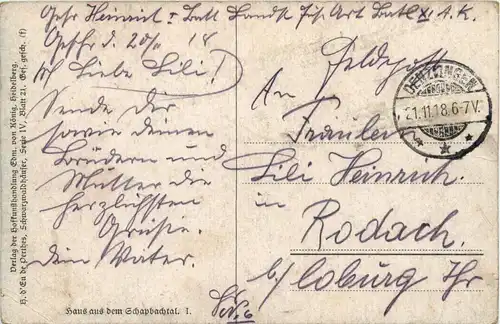 Gefr Heinrich I Batl Landst. Fuß Art Batl XI A.K.
Geschr d. 20/11 18
Liebe Lili!
Sende Dir
sowie deinen
Brüdern und
Mutter die
herzlichsten
Grüße.
Dein Vater.
Feldpost
An
Fräulein
Lili Heinrich.
in
Rodach.
b/ Coburg Thr
DENZLINGEN
21.11.18.6-7V.
Haus aus dem Schapbachtal. I.
Verlag der Hofkunsthandlung Edm. von König, Heidelberg.
H. d'En de Perthes, Schwarzwaldhäuser, Serie IV, Blatt 21. Ges. gesch. (f)